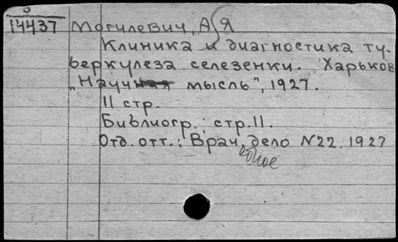 14437 Могилевич, А Я
Клиника и диагностика ту-
беркулеза селезенки. Харьков
„Научная мысль", 1927.
11 стр.
Библиогр.: стр. 11.
Отд. отт.: Врач. дело N22. 1927
ебное